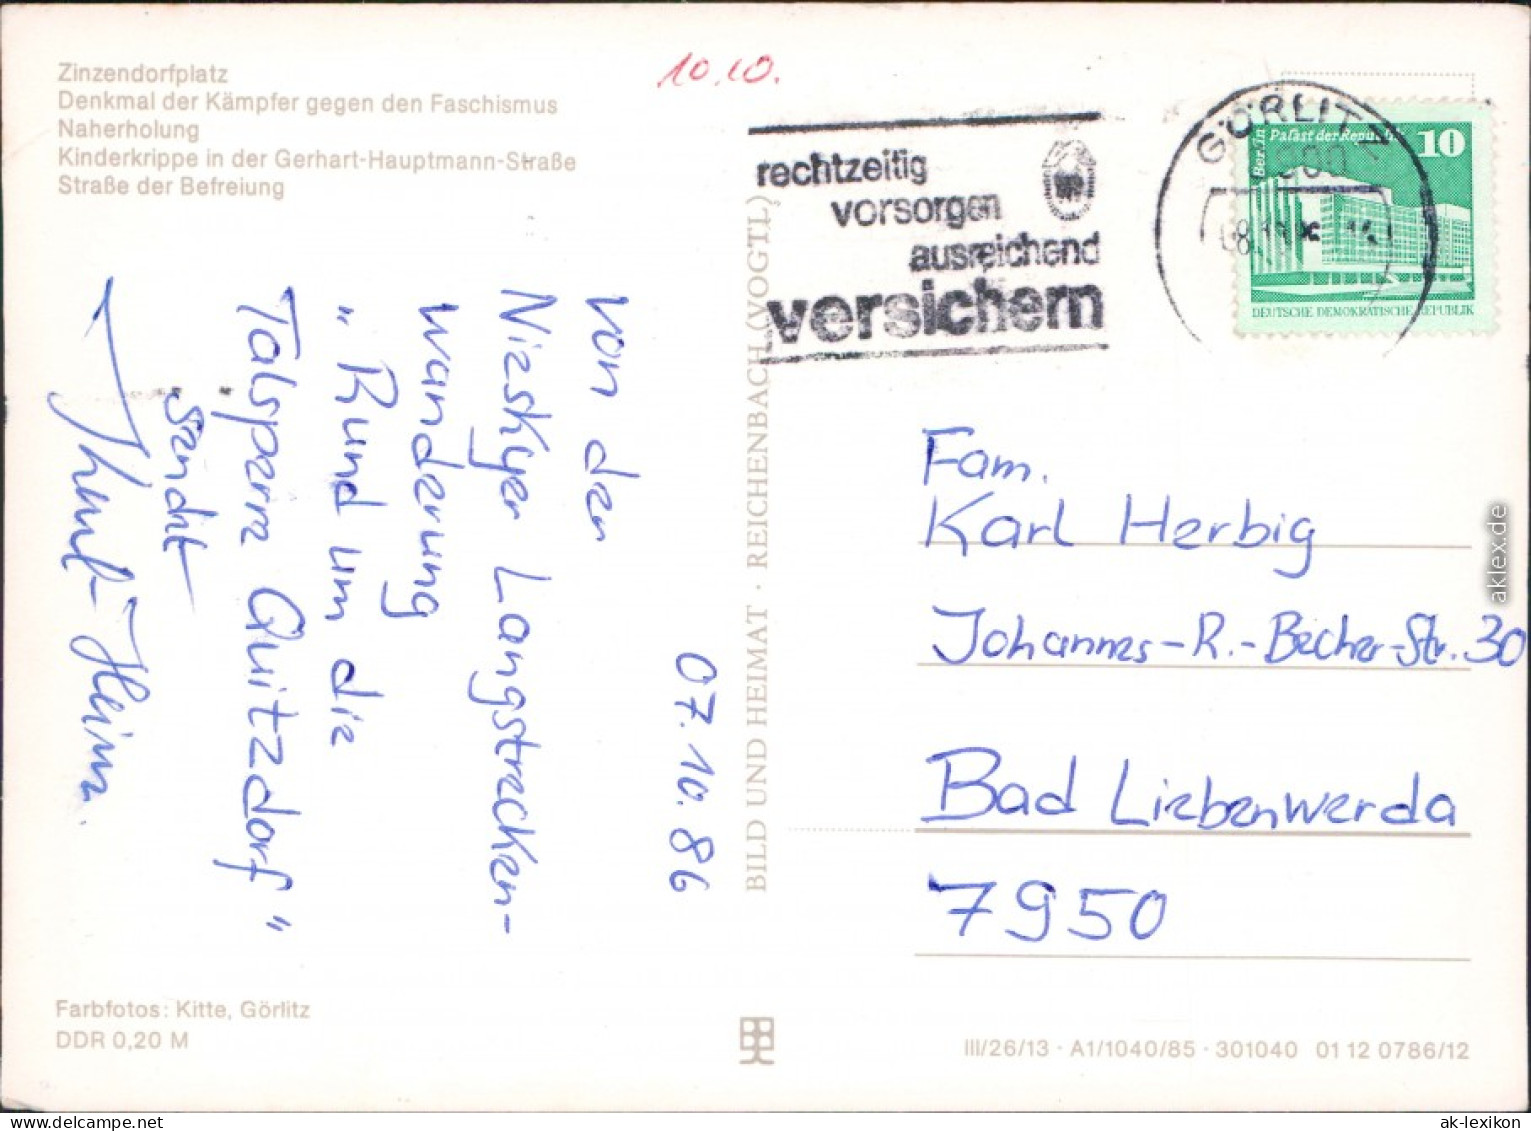 Zinzendorfplatz
Denkmal der Kämpfer gegen den Faschismus
Naherholung
Kinderkrippe in der Gerhart-Hauptmann-Straße
Straße der Befreiung
10.10.
rechtzeitig
vorsorgen
ausreichend
versichern
GÖRLITZ
Berlin Palast der Republik 10
DEUTSCHE DEMOKRATISCHE REPUBLIK
07.10.86
Von der
Nieskyer Langstrecken-
wanderung
"Rund um die
Talsperre Quitzdorf"
sendet
Heinz
BILD UND HEIMAT · REICHENBACH (VOGTL)
Fam.
Karl Herbig
Johannes-R.-Becher-Str. 30
Bad Liebenwerda
7950
Farbfotos: Kitte, Görlitz
DDR 0,20 M
III/26/13 · A1/1040/85 · 301040 01 12 0786/12
aklex.de
ak-lexikon